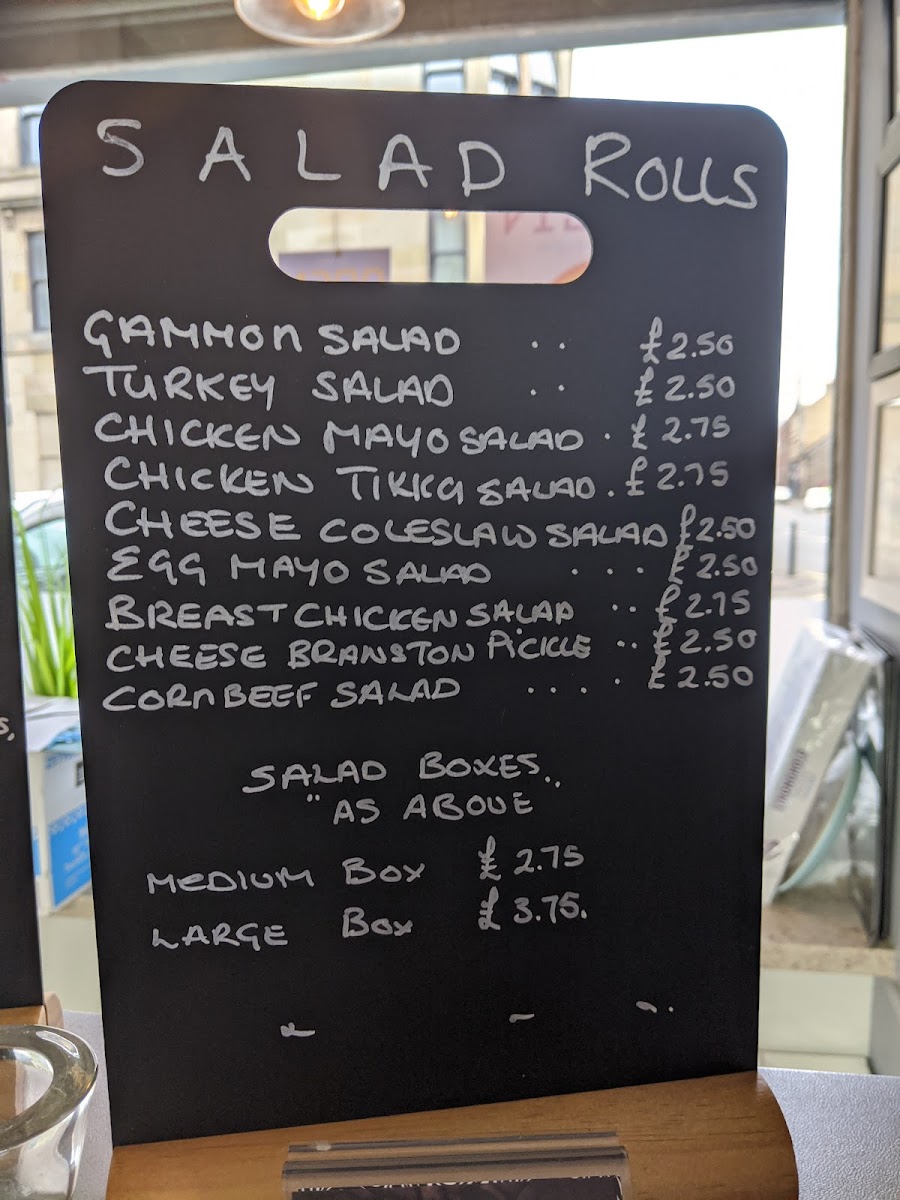 SALAD ROLLS
GAMMON SALAD .. £2.50
TURKEY SALAD .. £2.50
CHICKEN MAYO SALAD . £2.75
CHICKEN TIKKA SALAD . £2.75
CHEESE COLESLAW SALAD £2.50
EGG MAYO SALAD ... £2.50
BREAST CHICKEN SALAD .. £2.75
CHEESE BRANSTON PICKLE .. £2.50
CORNBEEF SALAD .... £2.50
SALAD BOXES..
"AS ABOVE
MEDIUM BOX £2.75
LARGE BOX £3.75.